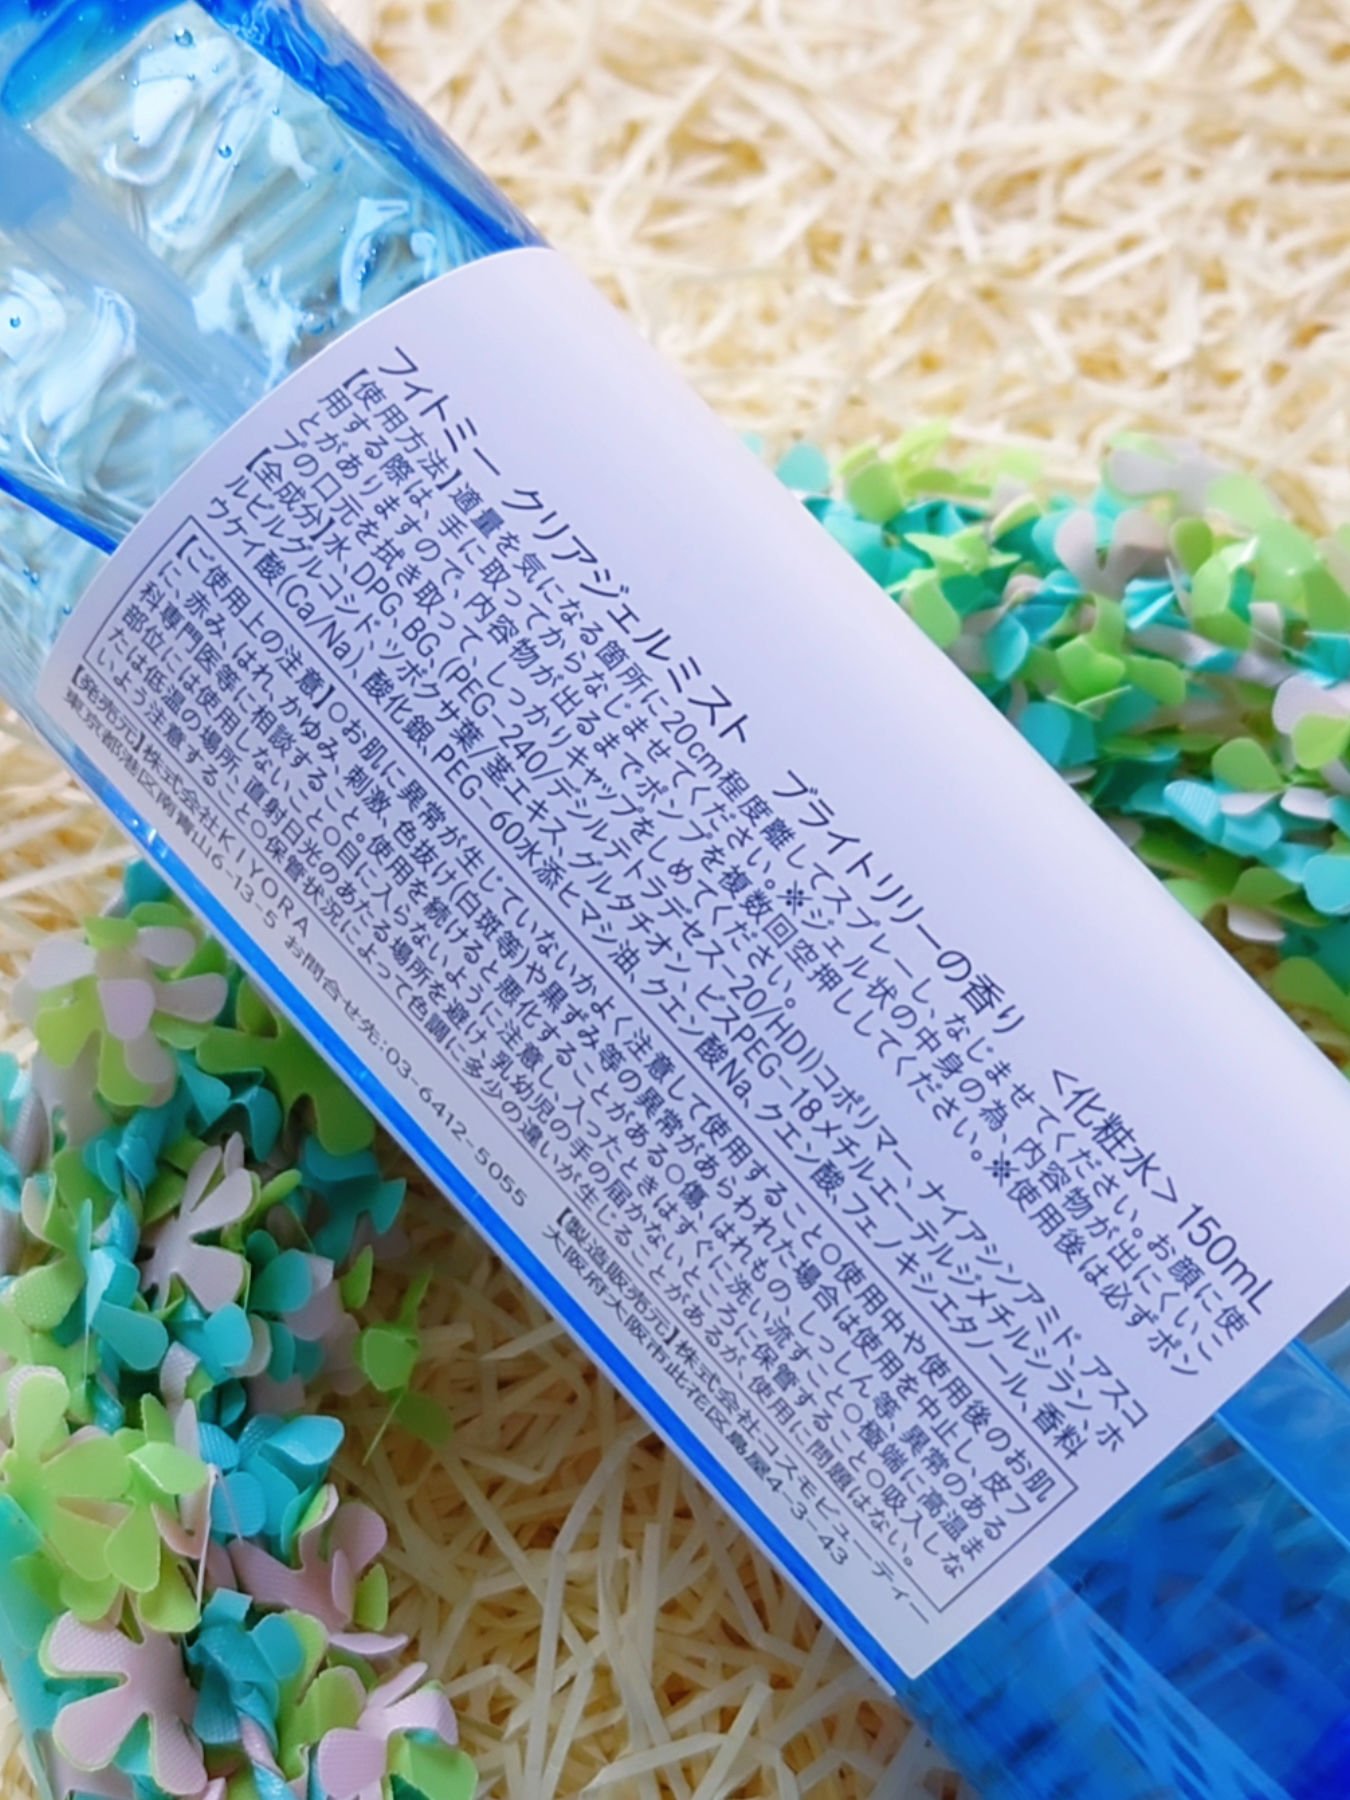 フィトミー クリアジェルミスト ブライトリリーの香り <化粧水> 150mL
【使用方法】適量を気になる箇所に20cm程度離してスプレーし、なじませてください。お顔に使
用する際は、手に取ってからなじませてください。※ジェル状の中身の為、内容物が出にくいこ
とがありますので、内容物が出るまでポンプを複数回空押ししてください。※使用後は必ずポン
プの口元を拭き取って、しっかりキャップをしめてください。
【全成分】水、DPG、BG、(PEG-240/デシルテトラデセス-20/HDI)コポリマー、ナイアシンアミド、アスコ
ルビルグルコシド、ツボクサ葉/茎エキス、グルタチオン、ビスPEG-18メチルエーテルジメチルシラン、ホ
ウケイ酸(Ca/Na)、酸化銀、PEG-60水添ヒマシ油、クエン酸Na、クエン酸、フェノキシエタノール、香料
【ご使用上の注意】○お肌に異常が生じていないかよく注意して使用すること○使用中や使用後のお肌
に、赤み、はれ、かゆみ、刺激、色抜け(白斑等)や黒ずみ等の異常があらわれた場合は使用を中止し、皮フ
科専門医等に相談すること。使用を続けると悪化することがある○傷、はれもの、しっしん等、異常のある
部位には使用しないこと○目に入らないように注意し、入ったときはすぐに洗い流すこと○極端に高温ま
たは低温の場所、直射日光のあたる場所を避け、乳幼児の手の届かないところに保管すること○吸入しな
いよう注意すること○保管状況によって色調に多少の違いが生じることがあるが、使用に問題はない。
【発売元】株式会社KIYORA 【製造販売元】株式会社コスモビューティー
東京都港区南青山6-13-5 お問合せ先:03-6412-5055 大阪府大阪市此花区島屋4-3-43